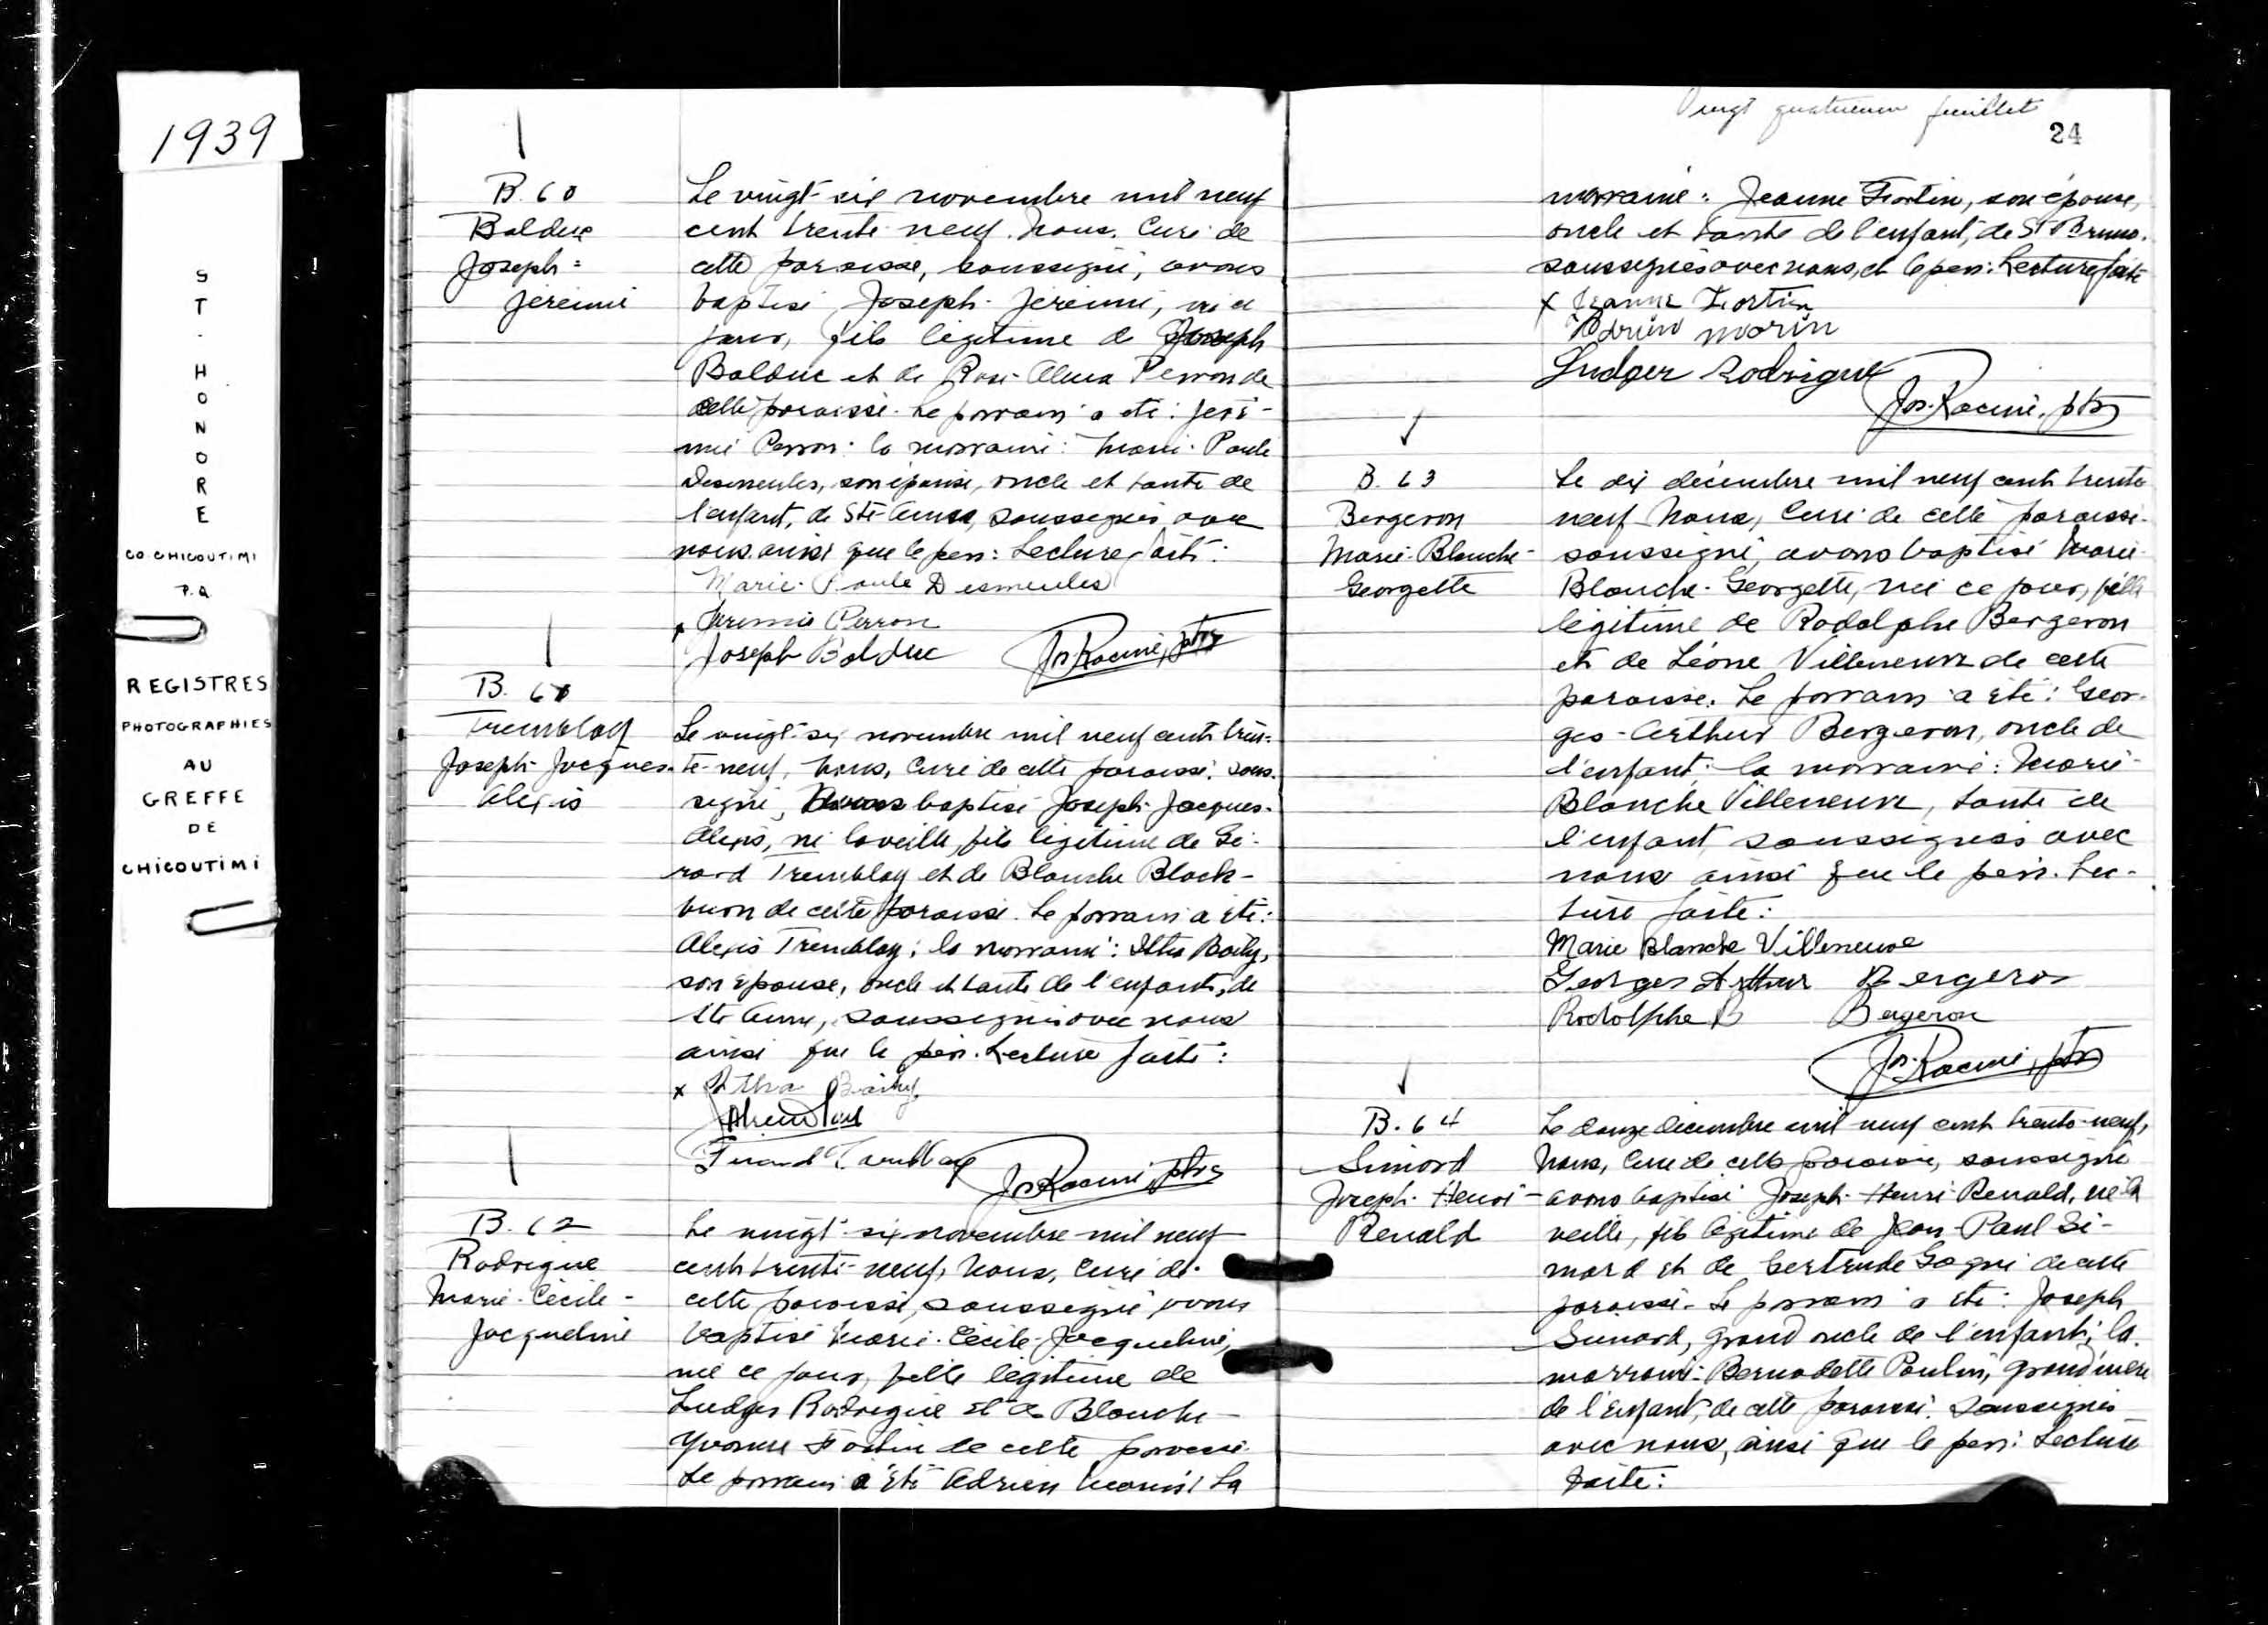 1939
ST. HONORE
CO. CHICOUTIMI
P.Q.
REGISTRES
PHOTOGRAPHIES
AU
GREFFE
DE
CHICOUTIMI
B. 60
Bolduc
Joseph-
Jérémie
Le vingt-six novembre mil neuf
cent trente neuf. Nous, Curé de
cette paroisse, soussigné, avons
baptisé Joseph-Jérémie, né ce
jour, fils légitime de Joseph
Bolduc et de Rose-Alma Perron de
cette paroisse. Le parrain a été: Jéré-
mie Perron: la marraine: Marie-Paule
Desmeules, son épouse, oncle et tante de
l'enfant, de Ste-Anne, soussignés avec
nous ainsi que le père: Lecture faite:
Marie-Paule Desmeules
x Jeremie Perron
Joseph Bolduc Jos. Racine, ptre
B. 61
Tremblay
Joseph-Jacques-
Alexis
Le vingt-six novembre mil neuf cent tren-
te-neuf, Nous, Curé de cette paroisse, sous-
signé, avons baptisé Joseph-Jacques-
Alexis, né la veille, fils légitime de Gé-
rard Tremblay et de Blanche Black-
burn de cette paroisse. Le parrain a été:
Alexis Tremblay; la marraine: Baily,
son épouse, oncle et tante de l'enfant, de
Ste Anne, soussignés avec nous
ainsi que le père. Lecture faite:
x Baily
Tremblay
Jos. Racine, ptre
B. 62
Rodrigue
Marie-Cécile-
Jacqueline
Le vingt-six novembre mil neuf
cent trente-neuf, Nous, Curé de
cette paroisse, soussigné, avons
baptisé Marie-Cécile-Jacqueline,
née ce jour, fille légitime de
Ludger Rodrigue et de Blanche-
Yvonne Fortin de cette paroisse
Le parrain a été Adrien Morin: La
Vingt quatrième feuillet
24
marraine: Jeanne Fortin, son épouse,
oncle et tante de l'enfant, de St-Bruno.
soussignés avec nous, et le père: Lecture faite
x Jeanne Fortin
Adrien Morin
Ludger Rodrigue
Jos. Racine, ptre
B. 63
Bergeron
Marie-Blanche-
Georgette
Le dix décembre mil neuf cent trente
neuf Nous, Curé de cette paroisse
soussigné, avons baptisé Marie-
Blanche-Georgette, née ce jour, fille
légitime de Rodolphe Bergeron
et de Léone Villeneuve de cette
paroisse. Le parrain a été: Geor-
ges-Arthur Bergeron, oncle de
l'enfant; la marraine: Marie-
Blanche Villeneuve, tante de
l'enfant soussignés avec
nous ainsi que le père. Lec-
ture faite:
Marie Blanche Villeneuve
Georges Arthur Bergeron
Rodolphe B Bergeron
Jos. Racine, ptre
B. 64
Simard
Joseph-Henri-
Renald
Le douze décembre mil neuf cent trente-neuf,
Nous, Curé de cette paroisse, soussigné
avons baptisé Joseph-Henri-Renald, né la
veille, fils légitime de Jean-Paul Si-
mard et de Gertrude Gagné de cette
paroisse. Le parrain a été: Joseph
Simard, grand oncle de l'enfant; la
marraine: Bernadette Poulin, grand'mère
de l'enfant, de cette paroisse. Soussignés
avec nous, ainsi que le père: Lecture
faite: